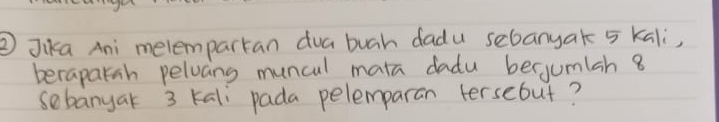 ② Jika Ani melemparkan dua buah dadu sebanyak 5 kali,
berapakah peluang muncul mata dadu berjumlah 8
sebanyak 3 kali pada pelemparan tersebut?